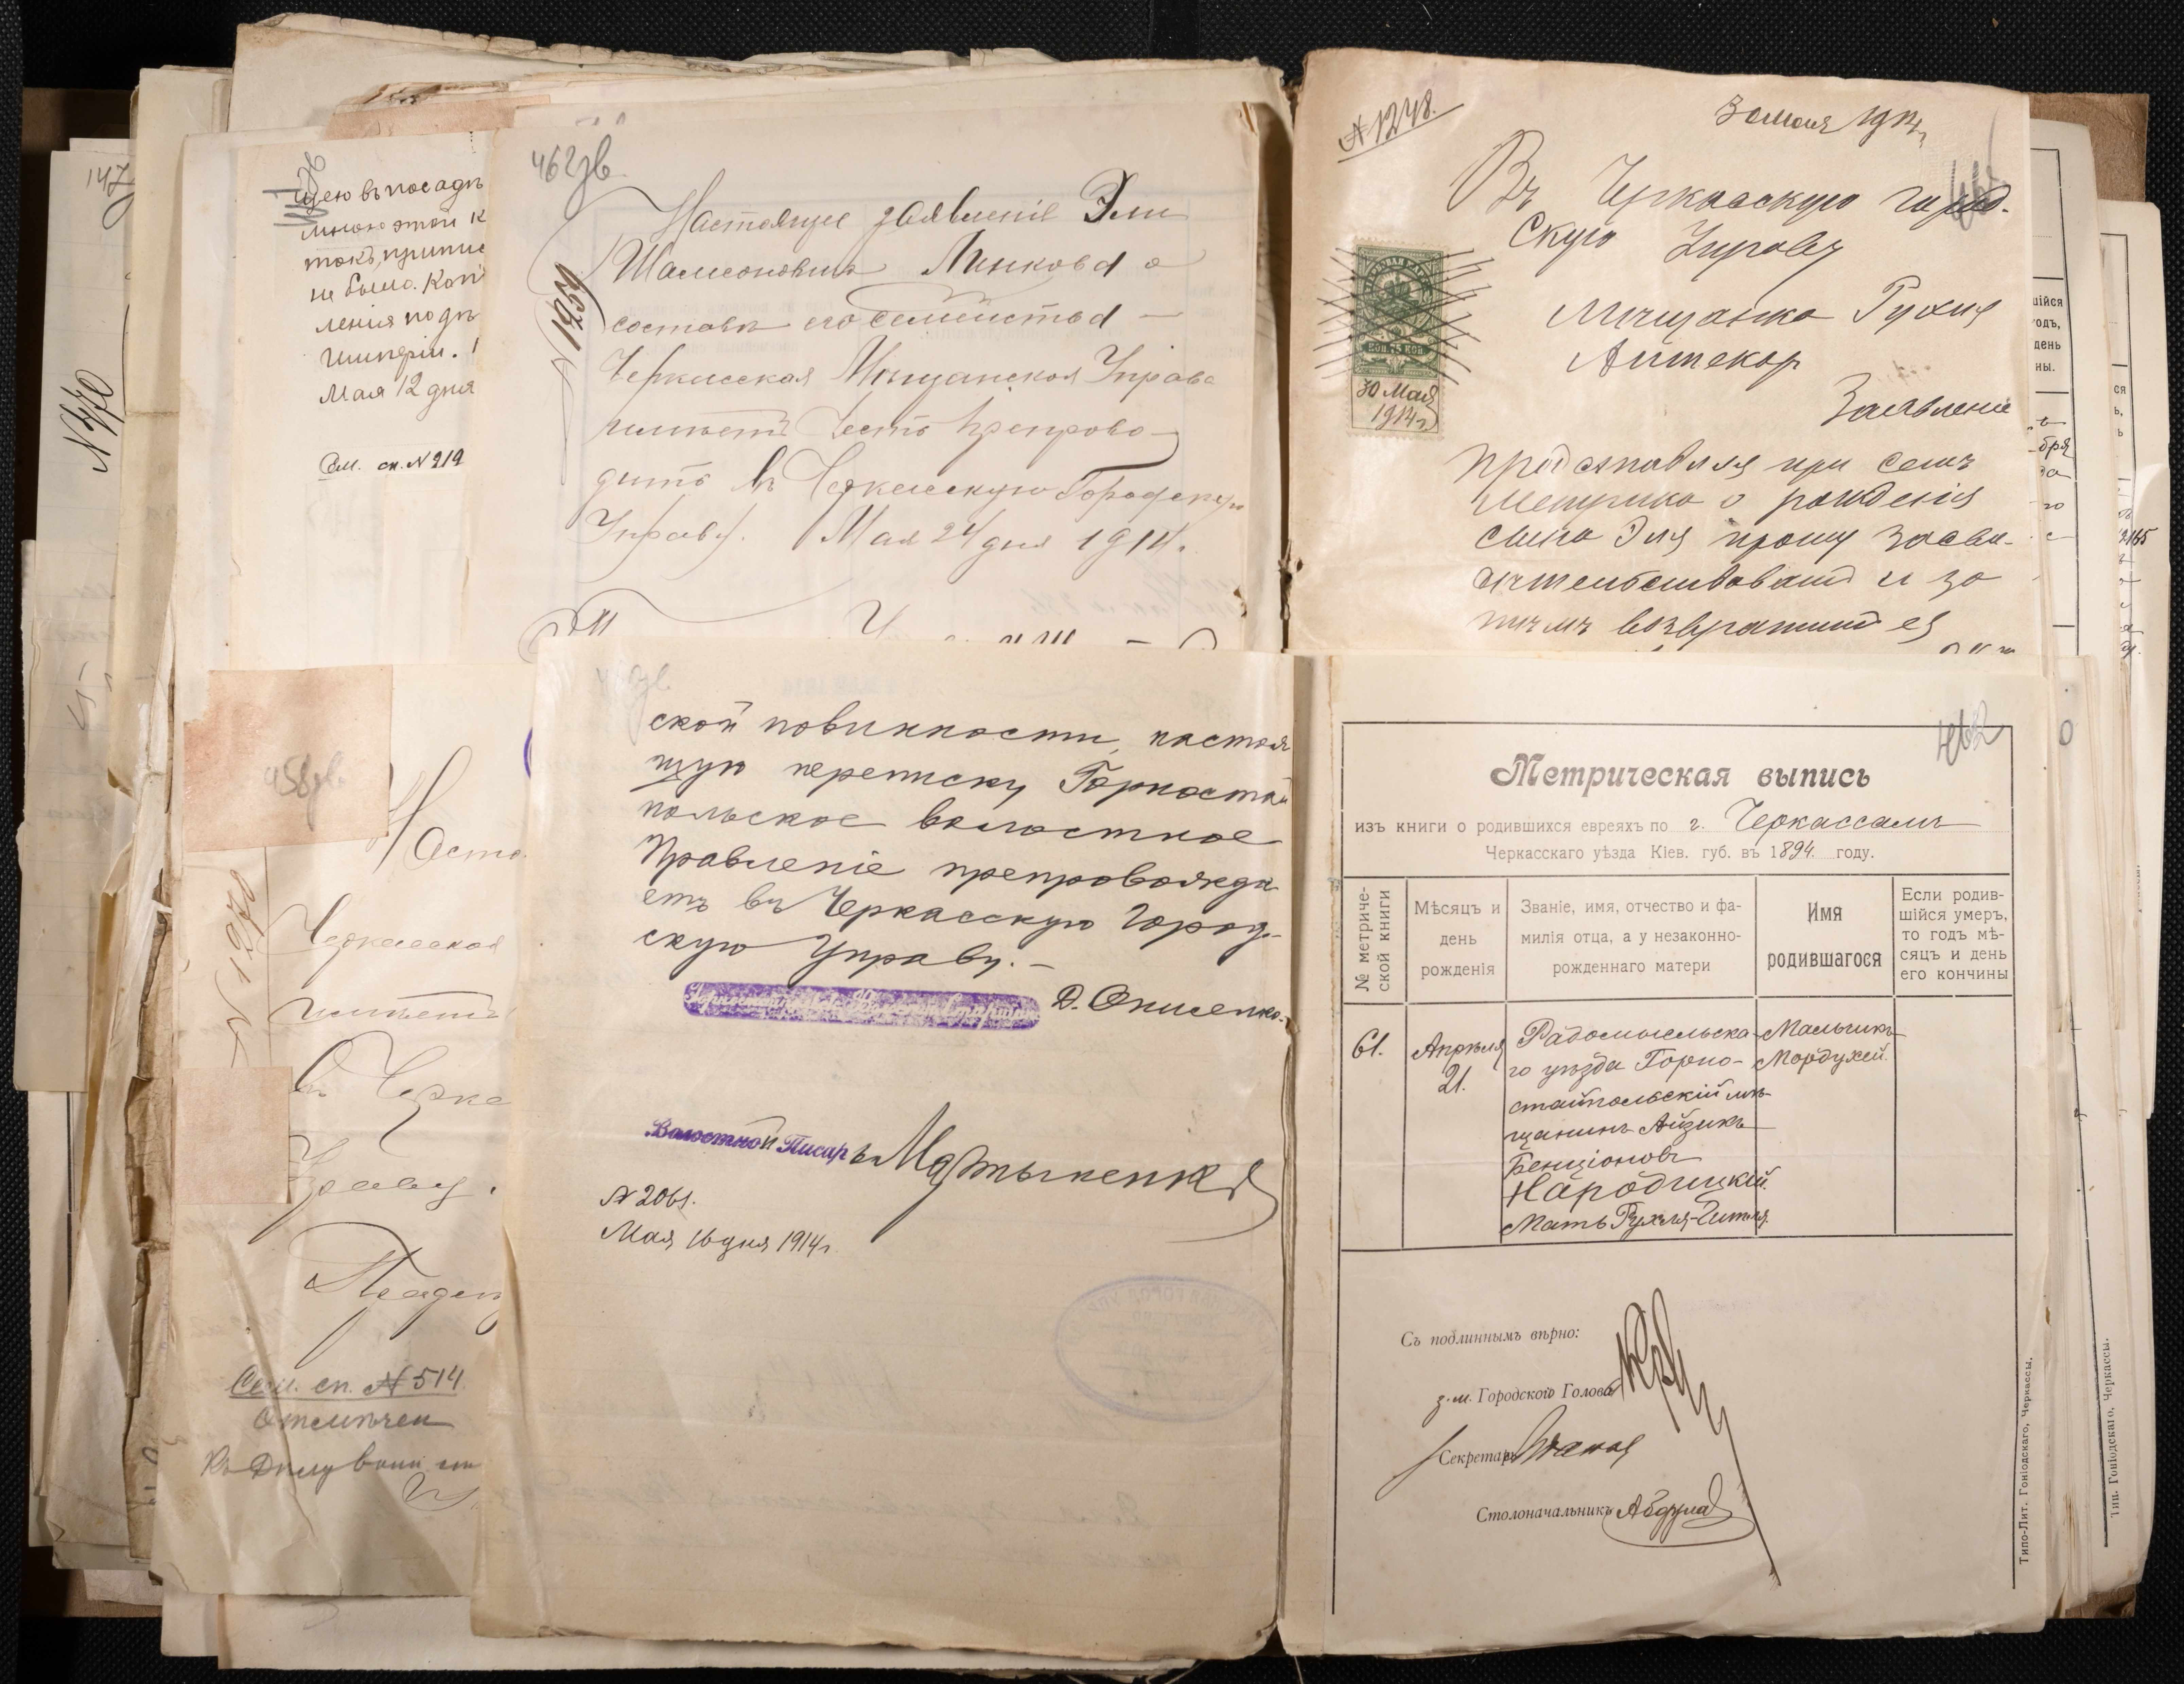 147
N 370
щею въ посадъ
мною этой к
токъ, припис
не было. Коп
ленія подъ
Имперіи.
Мая 12 дня
См. сп. N 212
462 зв
N 1259
Настоящее заявленіе Эли
Шамсоновича Линкова о
составѣ его семейства —
Черкасская Мѣщанская Управа
имѣетъ честь препрово-
дить въ Черкасскую Городскую
Управу. Мая 24 дня 1914.
N 1248.
30 мая 1914 г.
Въ Черкасскую город-
скую Управу
КОП. 75 КОП.
30 Мая
1914 г
Мѣщанка Рухля
Аптекар
Заявленіе
Представляя при семъ
метрику о рожденія
сына Эля прошу засви-
дѣтельствовать и за
тѣмъ возвратить ея
458 зв.
Насто
N 1270
Черкасская
имѣетъ
въ Черка
Управу.
Сем. сп. N 514
Отмѣчен
ской повинности, настоя
щую переписку Горностай
польское волостное
Правленіе препровожда
етъ въ Черкасскую Город-
скую Управу. —
Д. Онисенко.
Волостной Писарь Мартыненко
N 2061.
Мая 16 дня 1914 г.
462
Метрическая выпись
изъ книги о родившихся евреяхъ по г. Черкассамъ
Черкасскаго уѣзда Кіев. губ. въ 1894 году.
№ метриче-
ской книги
Мѣсяцъ и
день
рожденія
Званіе, имя, отчество и фа-
милія отца, а у незаконно-
рожденнаго матери
Имя
родившагося
Если родив-
шійся умеръ,
то годъ мѣ-
сяцъ и день
его кончины
61.
Апрѣля
21.
Радомысльска-
го уѣзда Горно-
стайпольскій мѣ-
щанинъ Айзикъ
Бенціоновъ
Народицкій.
Мать Рухля-Гитля.
Мальчикъ
Мордухей.
Съ подлиннымъ вѣрно:
з.м. Городского Головы
Секретарь
Столоначальникъ
Типо-Лит. Гоніодскаго, Черкассы.
Тип. Гоніодскаго, Черкассы.
шійся
одъ,
день
ны.
бря
165